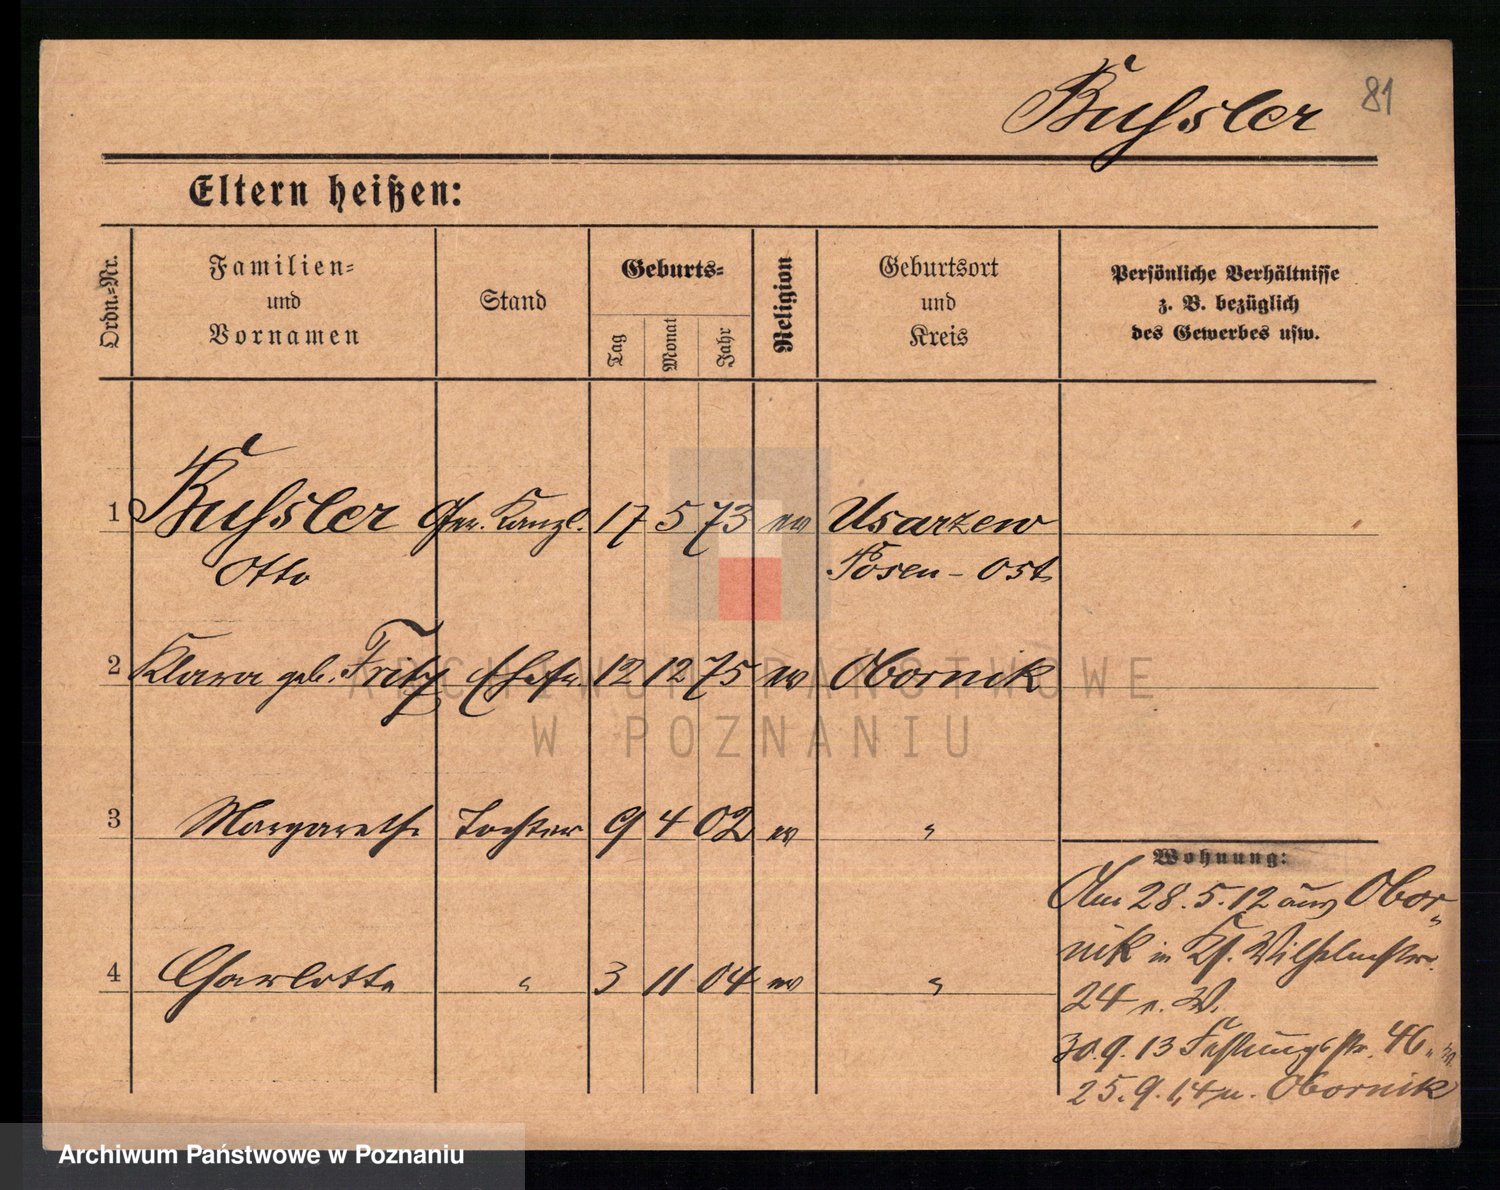 Bußler 81
Eltern heißen:
Ordn.-Nr.
Familien-
und
Vornamen
Stand
Geburts-
Tag
Monat
Jahr
Religion
Geburtsort
und
Kreis
Persönliche Verhältnisse
z. B. bezüglich
des Gewerbes usw.
1 Bußler Ger. Kanzl. 17 5 73 ev Usarzew
Otto Posen-Ost
2 Klara geb. Fritz Ehefr. 12 12 75 ev Obornik
3 Margarethe Tochter 9 4 02 ev "
Wohnung:
Am 28.5.12 aus Obor-
4 Charlotte " 3 11 04 ev "
nik in Wilhelmstr.
24 v. W.
30.9.13 Festungsstr. 46
25.9.14 n. Obornik
ARCHIWUM PAŃSTWOWE
W POZNANIU
Archiwum Państwowe w Poznaniu